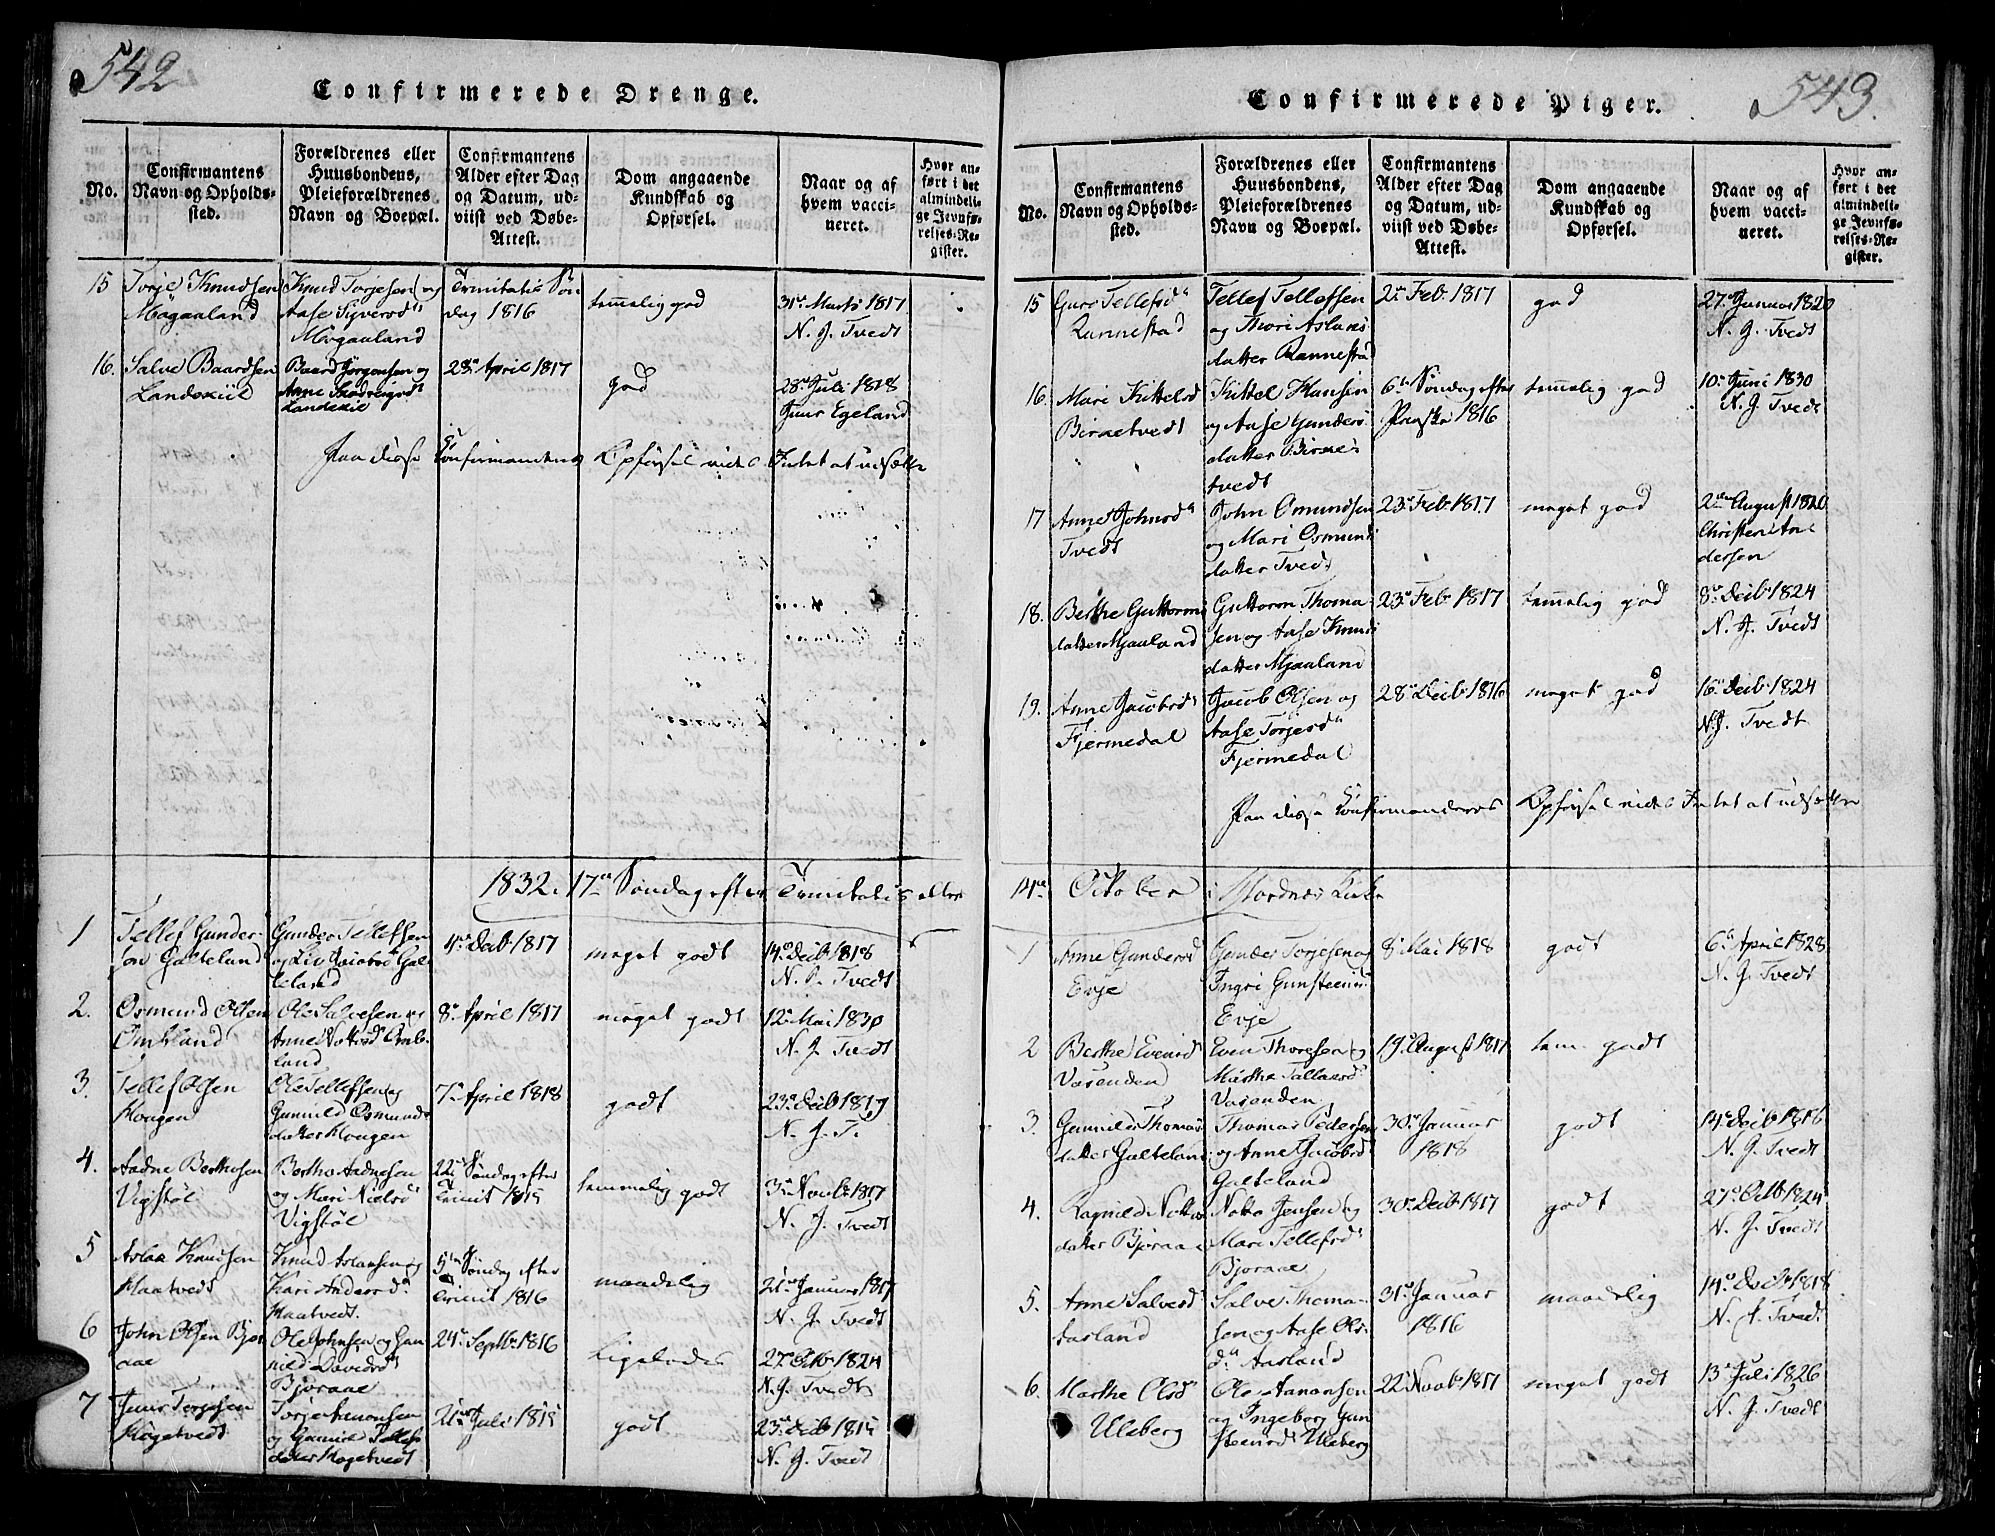 542
Confirmerede Drenge.
No.
Confirmantens
Navn og Opholds-
sted.
Forældrenes eller
Huusbondens,
Pleieforældrenes
Navn og Boepæl.
Confirmantens
Alder efter Dag
og Datum, ud-
viist ved Døbe-
Attest.
Dom angaaende
Kundskab og
Opførsel.
Naar og af
hvem vacci-
neret.
Hvor an-
ført i det
almindeli-
ge Jevnfø-
relses-Re-
gister.
15
Torje Knudsen
Mogaaland
Knud Torjesen og
Aase Siverdsd.
Mogaaland
Trinitatis Søn
dag 1816
temelig god
31te Marts 1817
N. J. Tvedt
16.
Salve Baardsen
Landeskiil
Baard Jørgensen og
Anne
Landeskiil
28de April 1817
god
28de Juli 1818
Juur Egeland
Paa disse Confirmanders Opførsel vides Intet at udsætte
1832. 17de Søndag efter Trinitatis eller
1
Tellef Gunder-
sen Galteland
Gunder Tellefsen
og Liv Jacobsd. Gal-
teland
4de Decbr 1817
meget godt
14de Decbr 1818
N. J. Tvedt
2.
Osmund Olsen
Omland
Ole Salvesen og
Anne Notosd. Om-
land
8de April 1817
meget godt
12te Mai 1830
N. J. Tvedt
3.
Tellef Olsen
Haugen
Ole Tellefsen og
Gunnild Osmunds
datter Haugen
7de April 1818
godt
23de Decbr 1817
N. J. T.
4.
Aadne Berthosen
Vigstøl
Bertho Aadnesen
og Mari Nielsd.
Vigstøl
22de Søndag efter
Trinit 1815
temmelig godt
3die Novbr 1817
N. J. Tvedt
5
Aslak Knudsen
Haatvedt
Knud Aslaksen og
Kari Andersd.
Haatvedt.
5te Søndag efter
Trinit 1816
maadelig
21de Januar 1817
N. J. Tvedt
6
John Olsen Bjor
aae
Ole Johnsen og Gun
nild Davidsd.
Bjoraae
24de Septbr 1816
Ligeledes
27de Octbr 1824
N. J. Tvedt
7
Juur Torjesen
Høgetvedt
Torje Simonsen
og Gunnild Tellefs
datter Høgetvedt
21de Juli 1815
godt
23de Decbr 1815
N. J. Tvedt
543.
Confirmerede Piger.
No.
Confirmantens
Navn og Opholds-
sted.
Forældrenes eller
Huusbondens,
Pleieforældrenes
Navn og Boepæl.
Confirmantens
Alder efter Dag
og Datum, ud-
viist ved Døbe-
Attest.
Dom angaaende
Kundskab og
Opførsel.
Naar og af
hvem vacci-
neret.
Hvor an-
ført i det
almindeli-
ge Jevnfø-
relses-Re-
gister.
15
Guro Tellefsd.
Rannestad
Tellef Tellefsen
og Thori Aslaks
datter Rannestad
2de Feb. 1817
god
27de Januar 1820
N. J. Tvedt
16.
Mari Kittelsd
Birketvedt
Kittel Hansen
og Aase Gunders
datter Birke-
tvedt
6te Søndag efter
Paaske 1816
temelig god
10de Juni 1830
N. J. Tvedt
17
Anne Johnsd.
Tvedt
John Osmundsen
og Mari Osmunds
datter Tvedt
23de Feb. 1817
meget god
2den August 1820
Christen An-
dersen
18.
Berthe Guttorms
datter Mjaaland
Guttorm Thoma-
sen og Aase Knuds
datter Mjaaland
23de Feb. 1817
temelig god
8de Decbr 1824
N. J. Tvedt
19.
Anne Jacobsd.
Fjermedal
Jacob Olsen og
Aase Torjesd.
Fjermedal
28de Decbr 1816
meget god
16de Decbr 1824
N. J. Tvedt
Paa disse Confirmanders Opførsel vides Intet at udsætte
14de October i Hordnes Kirke
1
Anne Gundersd
Evje
Gunder Torjesen og
Ingri Gunsteins
Evje
8de Mai 1818
godt
6te April 1828
N. J. Tvedt
2
Berthe Evensd
Vasenden
Even Thoresen og
Marthe Tallaksd.
Vasenden
19de August 1817
tem. godt
3.
Gunnild Thomas
datter Galteland
Thomas Pedersen
og Anne Jacobsd
Galteland
30de Januar
1818
godt
14de Decbr 1818
N. J. Tvedt
4.
Ragnild Notos
datter Bjoraae
Noto Jensen og
Mari Tellefsd.
Bjoraae
30de Decbr 1817
godt
27de Octbr 1824
N. J. Tvedt
5.
Anne Salvesd
Aasland
Salve Thoma-
sen og Aase Ols
d. Aasland
31te Januar
1816
maadelig
14de Decbr 1818
N. J. Tvedt
6.
Marthe Olsd
Uleberg
Ole Aanonsen
og Ingeborg Gun
steinsd. Uleberg
22de Novbr 1817
meget godt
13de Juli 1826
N. J. Tvedt